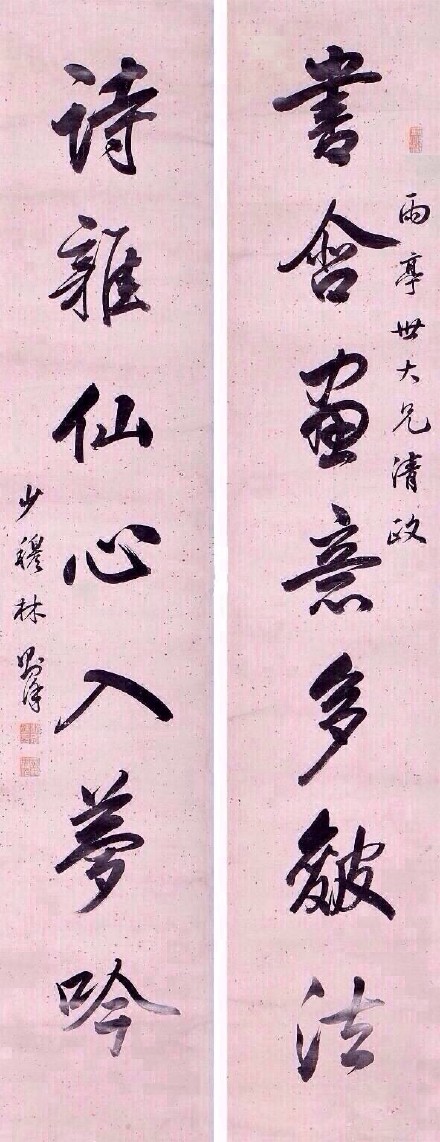 雨亭世大兄清政
書含畫意多皴法
詩雜仙心入夢吟
少穆林則徐